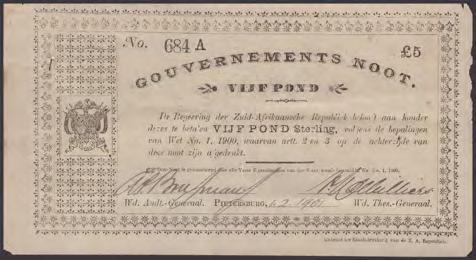 No. 684 A £5
GOUVERNEMENTS NOOT.
VIJF POND
De Regeering der Zuid-Afrikaansche Republiek belooft aan houder
dezes te betalen VIJF POND Sterling, volgens de bepalingen
van Wet No. 1, 1900, waarvan artt. 2 en 3 op de achterzijde van
deze noot zijn afgedrukt.
Wd. Audt.-Generaal. PIETERSBURG, 1.2.1901 Wd. Thes.-Generaal.